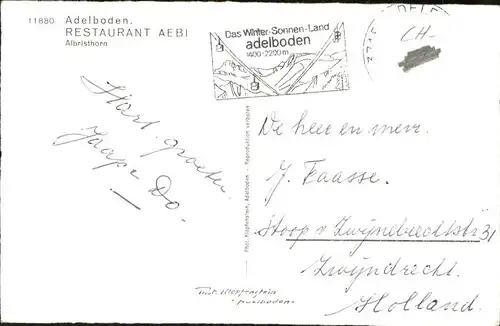 11880 Adelboden.
RESTAURANT AEBI
Albristhorn
Das Winter-Sonnen-Land
adelboden
1400-2200 m
CH-
Hart. groeten
Jaap + Do.
Phot. Klopfenstein, Adelboden - Reproduktion verboten
De heer en mevr.
J. Faasse.
Hoop v Zwijndrechtstr 31
Zwijndrecht.
Holland.
Phot. Klopfenstein
Adelboden